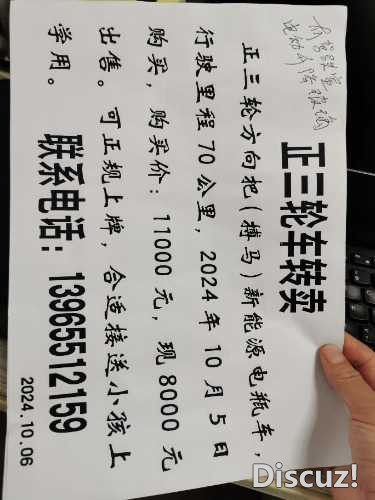 电动升降玻璃
正三轮车转卖
正三轮方向把(搏马)新能源电瓶车,
行驶里程70公里,2024年10月5日
购买,购买价:11000元,现8000元
出售。可正规上牌,合适接送小孩上
学用。
联系电话:13965512159
2024.10.06
Discuz!